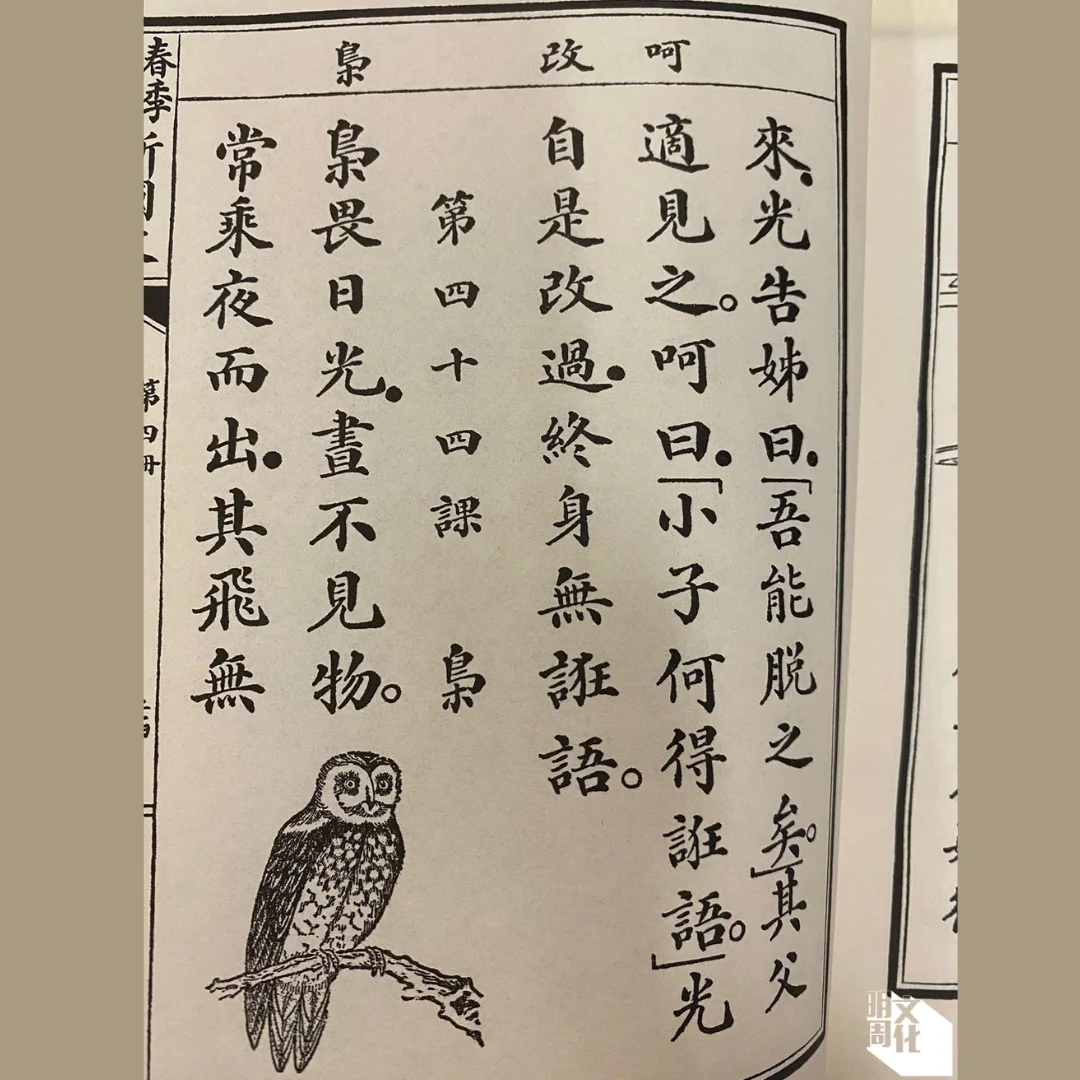 呵 改 梟
來．光告姊曰．「吾能脫之矣。」其父
適見之。呵曰．「小子何得誑語。」光
自是改過．終身無誑語。
第四十四課 梟
梟畏日光．晝不見物。
常乘夜而出．其飛無
春季
第四冊
明周文化